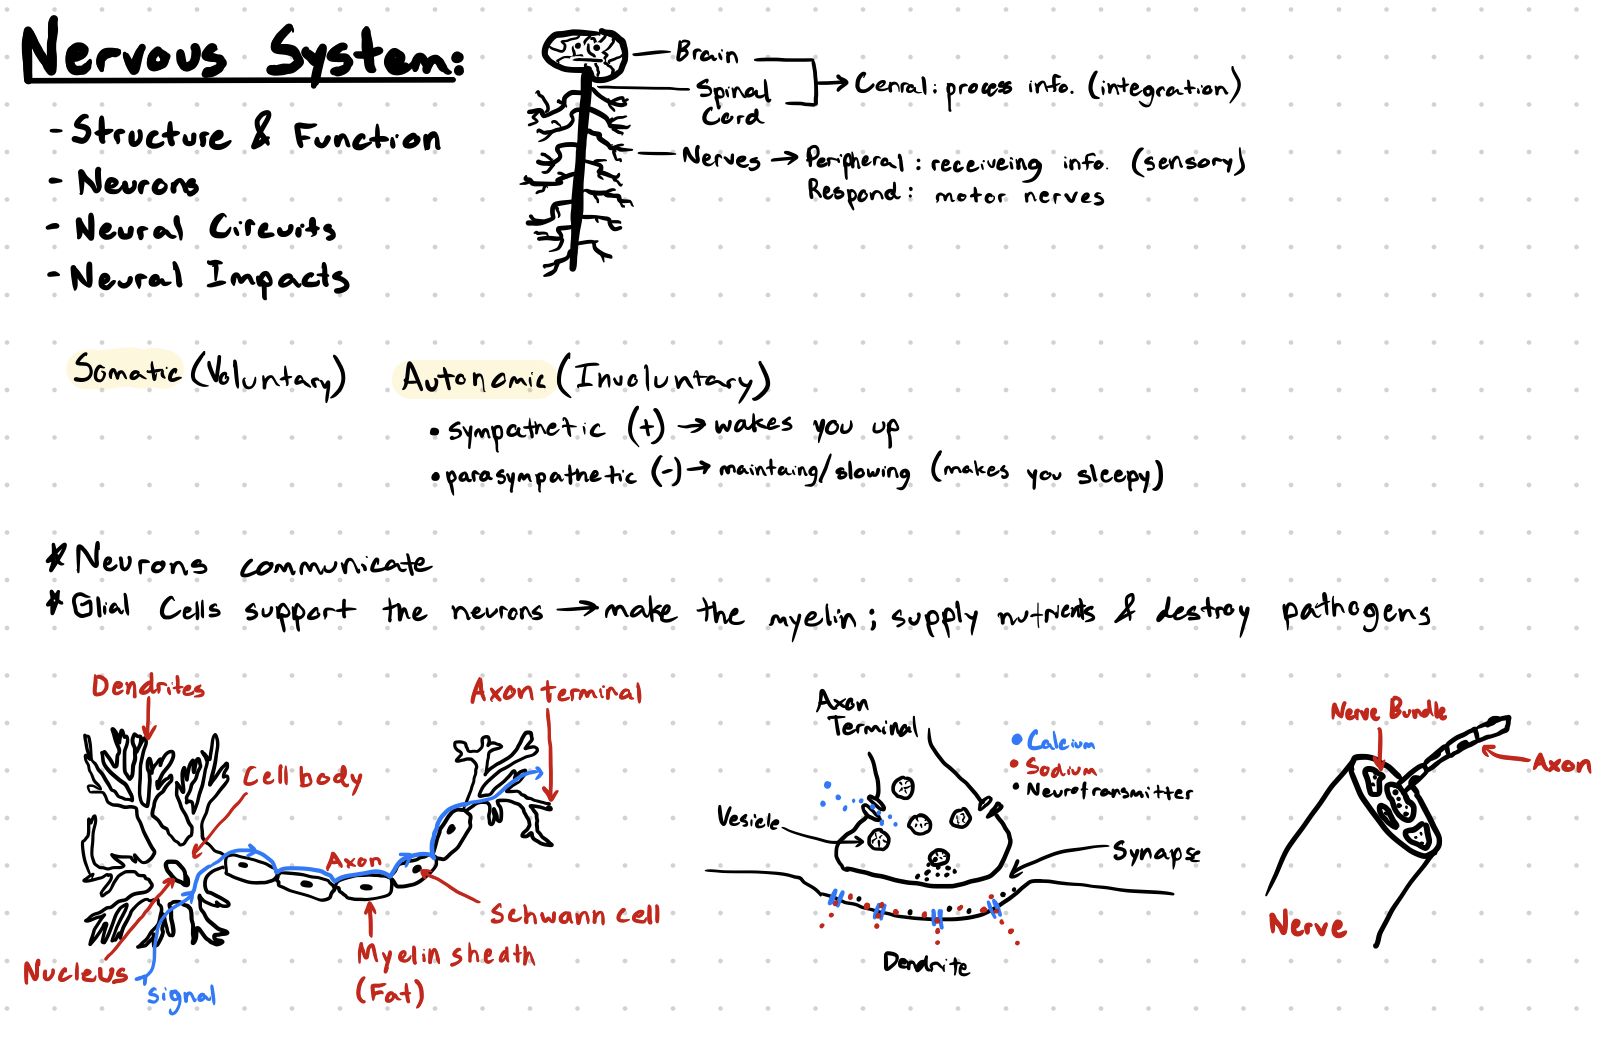 Nervous System:
- Structure & Function
- Neurons
- Neural Circuits
- Neural Impacts
Brain
Spinal
Cord
Cenral: process info. (integration)
Nerves → Peripheral: receiveing info. (sensory)
Respond: motor nerves
Somatic (Voluntary)
Autonomic (Involuntary)
• sympathetic (+) → wakes you up
• parasympathetic (-) → maintaing/slowing (makes you sleepy)
* Neurons communicate
* Glial Cells support the neurons → make the myelin; supply nutrients & destroy pathogens
Dendrites
Axon terminal
Cell body
Axon
Schwann cell
Myelin sheath
(Fat)
Nucleus
signal
Axon
Terminal
• Calcium
• Sodium
• Neurotransmitter
Vesicle
Synapse
Dendrite
Nerve Bundle
Axon
Nerve